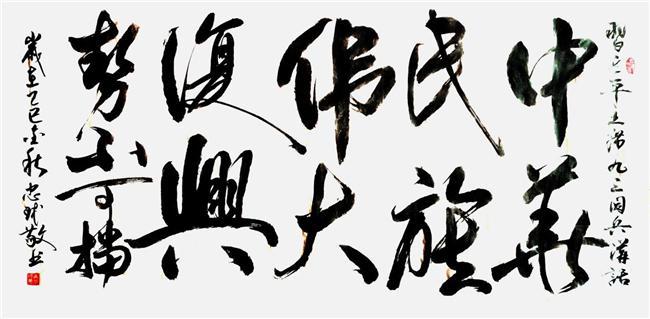 習近平主席九三閱兵講話
中華
民族
偉大
復興
勢不可擋
歲在乙巳金秋 忠 敬書